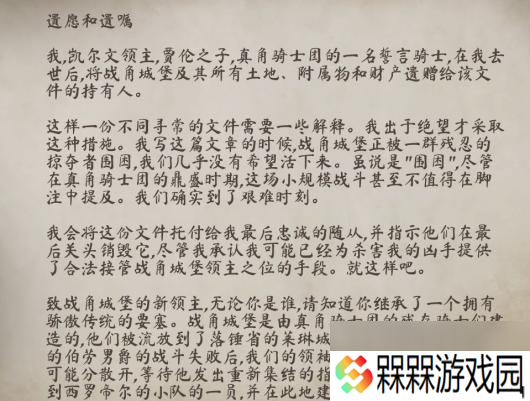 遗愿和遗嘱
我,凯尔文领主,贾伦之子,真角骑士团的一名誓言骑士,在我去
世后,将战角城堡及其所有土地、附属物和财产遗赠给该文
件的持有人。
这样一份不同寻常的文件需要一些解释。我出于绝望才采取
这种措施。我写这篇文章的时候,战角城堡正被一群残忍的
掠夺者围困,我们几乎没有希望活下来。虽说是"围困",尽管
在真角骑士团的鼎盛时期,这场小规模战斗甚至不值得在脚
注中提及。我们确实到了艰难时刻。
我会将这份文件托付给我最后忠诚的随从,并指示他们在最
后关头销毁它,尽管我承认我可能已经为杀害我的凶手提供
了合法接管战角城堡领主之位的手段。就这样吧。
致战角城堡的新领主,无论你是谁,请知道你继承了一个拥有
骄傲传统的要塞。战角城堡是由真角骑士团的残存骑士们建
造的,他们被流放到了落锤省的莱琳城
的伯劳男爵的战斗失败后,我们的领袖
可能分散开,等待他发出重新集结的指
到西罗帝尔的小队的一员,并在此地建
槑槑游戏园
www.dmmyxy.com